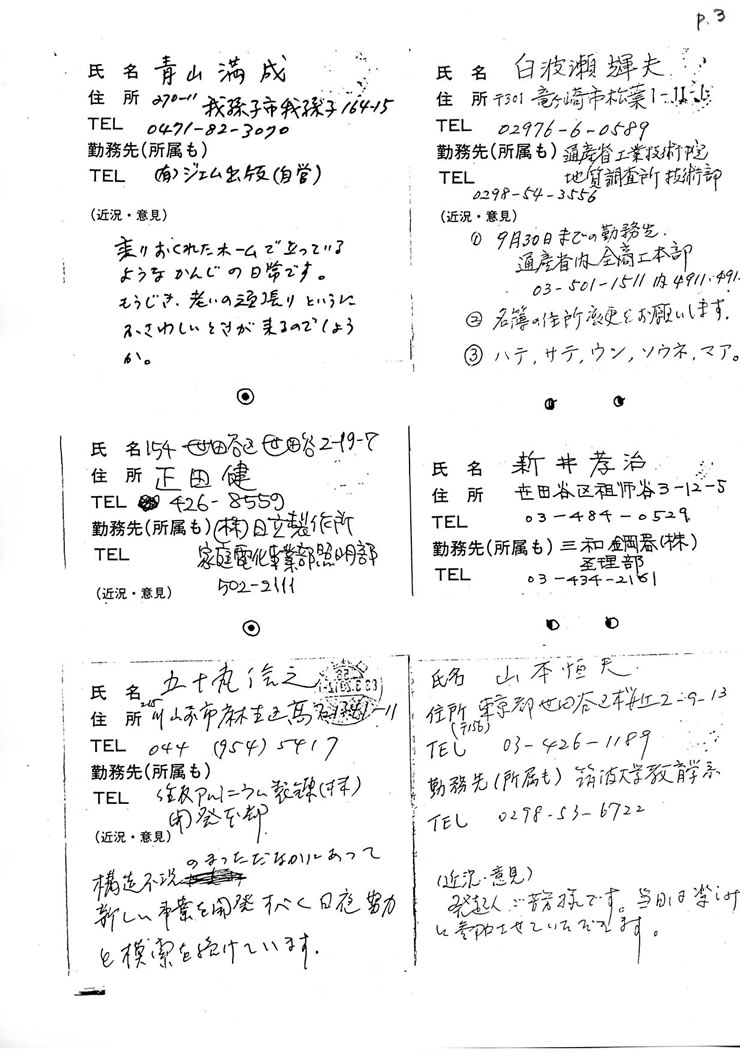 p.3
氏名 青山満成
住所 270-11 我孫子市我孫子164-15
TEL 0471-82-3070
勤務先(所属も)
TEL (有)ジェム出版(自営)
(近況・意見)
乗りおくれたホームで立っている
ようなかんじの日常です。
もうじき、老いの頑張りというに
ふさわしいときが来るのでしょう
か。
氏名 白波瀬輝夫
住所 〒301 竜ヶ崎市松葉1-11-1
TEL 02976-6-0589
勤務先(所属も) 通産省工業技術院
TEL 地質調査所技術部
0298-54-3556
(近況・意見)
① 9月30日までの勤務先.
通産省内全商工本部
03-501-1511 内4911.491
② 名簿の住所変更をお願いします.
③ ハテ,サテ,ウン,ソウネ,マア。
氏名 154 世田谷区世田谷2-19-7
住所 正田健
TEL 426-8559
勤務先(所属も) (株)日立製作所
TEL 家庭電化事業部照明部
502-2111
(近況・意見)
氏名 新井孝治
住所 世田谷区祖師谷3-12-5
TEL 03-484-0529
勤務先(所属も) 三和鋼器(株)
TEL 03-434-2161
氏名 五十丸
住所 215 川崎市麻生区高石
TEL 044 (954) 5417
勤務先(所属も)
TEL 住友アルミニウム製錬(株)
開発本部
(近況・意見)
構造不況のまっただなかにあって
新しい事業を開発すべく日夜努力
と模索を続けています.
氏名 山本恒夫
住所 東京都世田谷区桜丘2-9-13
(〒156)
TEL 03-426-1189
勤務先(所属も) 筑波大学教育学系
TEL 0298-53-6722
(近況・意見)
発起人ご苦労様です。当日は楽しみ
に参加させていただきます。